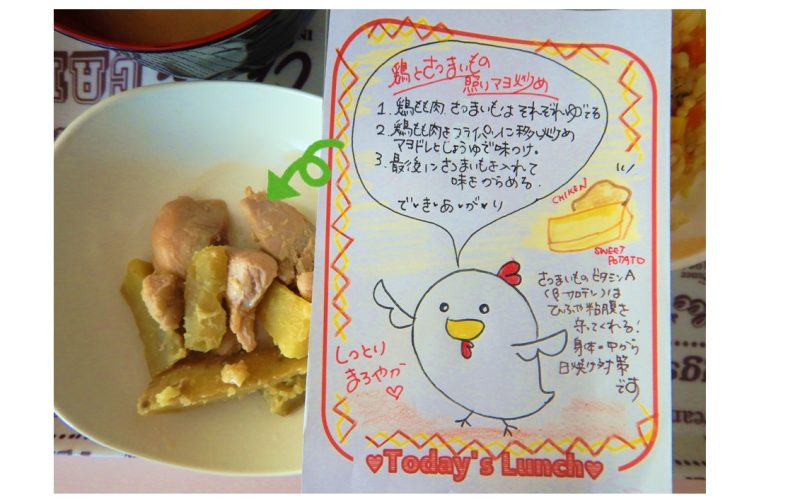 鶏とさつまいもの
照りマヨ炒め
1. 鶏もも肉、さつまいもは それぞれゆでる
2. 鶏もも肉をフライパンに移し炒め
マヨドレとしょうゆで味つけ。
3. 最後にさつまいもを入れて
味をからめる.
で・き・あ・が・り
CHIKEN
SWEET
POTATO
さつまいものビタミンA
(β-カロテン)は
ひふや粘膜を
守ってくれる!
身体の中から
日焼け対策
です
しっとり
まろやか♡
♥Today's Lunch♥